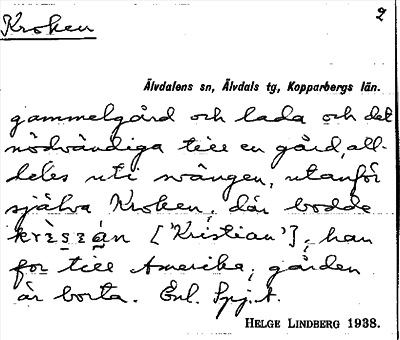 Kroken
2
Älvdalens sn, Älvdals tg, Kopparbergs län.
gammelgård och lada och det
nödvändiga till en gård, all-
deles uti svängen, utanför
själva Kroken, där bodde
krèsean ['Kristian'], han
for till Amerika, gården
är borta. Enl. Spj. A.
HELGE LINDBERG 1938.